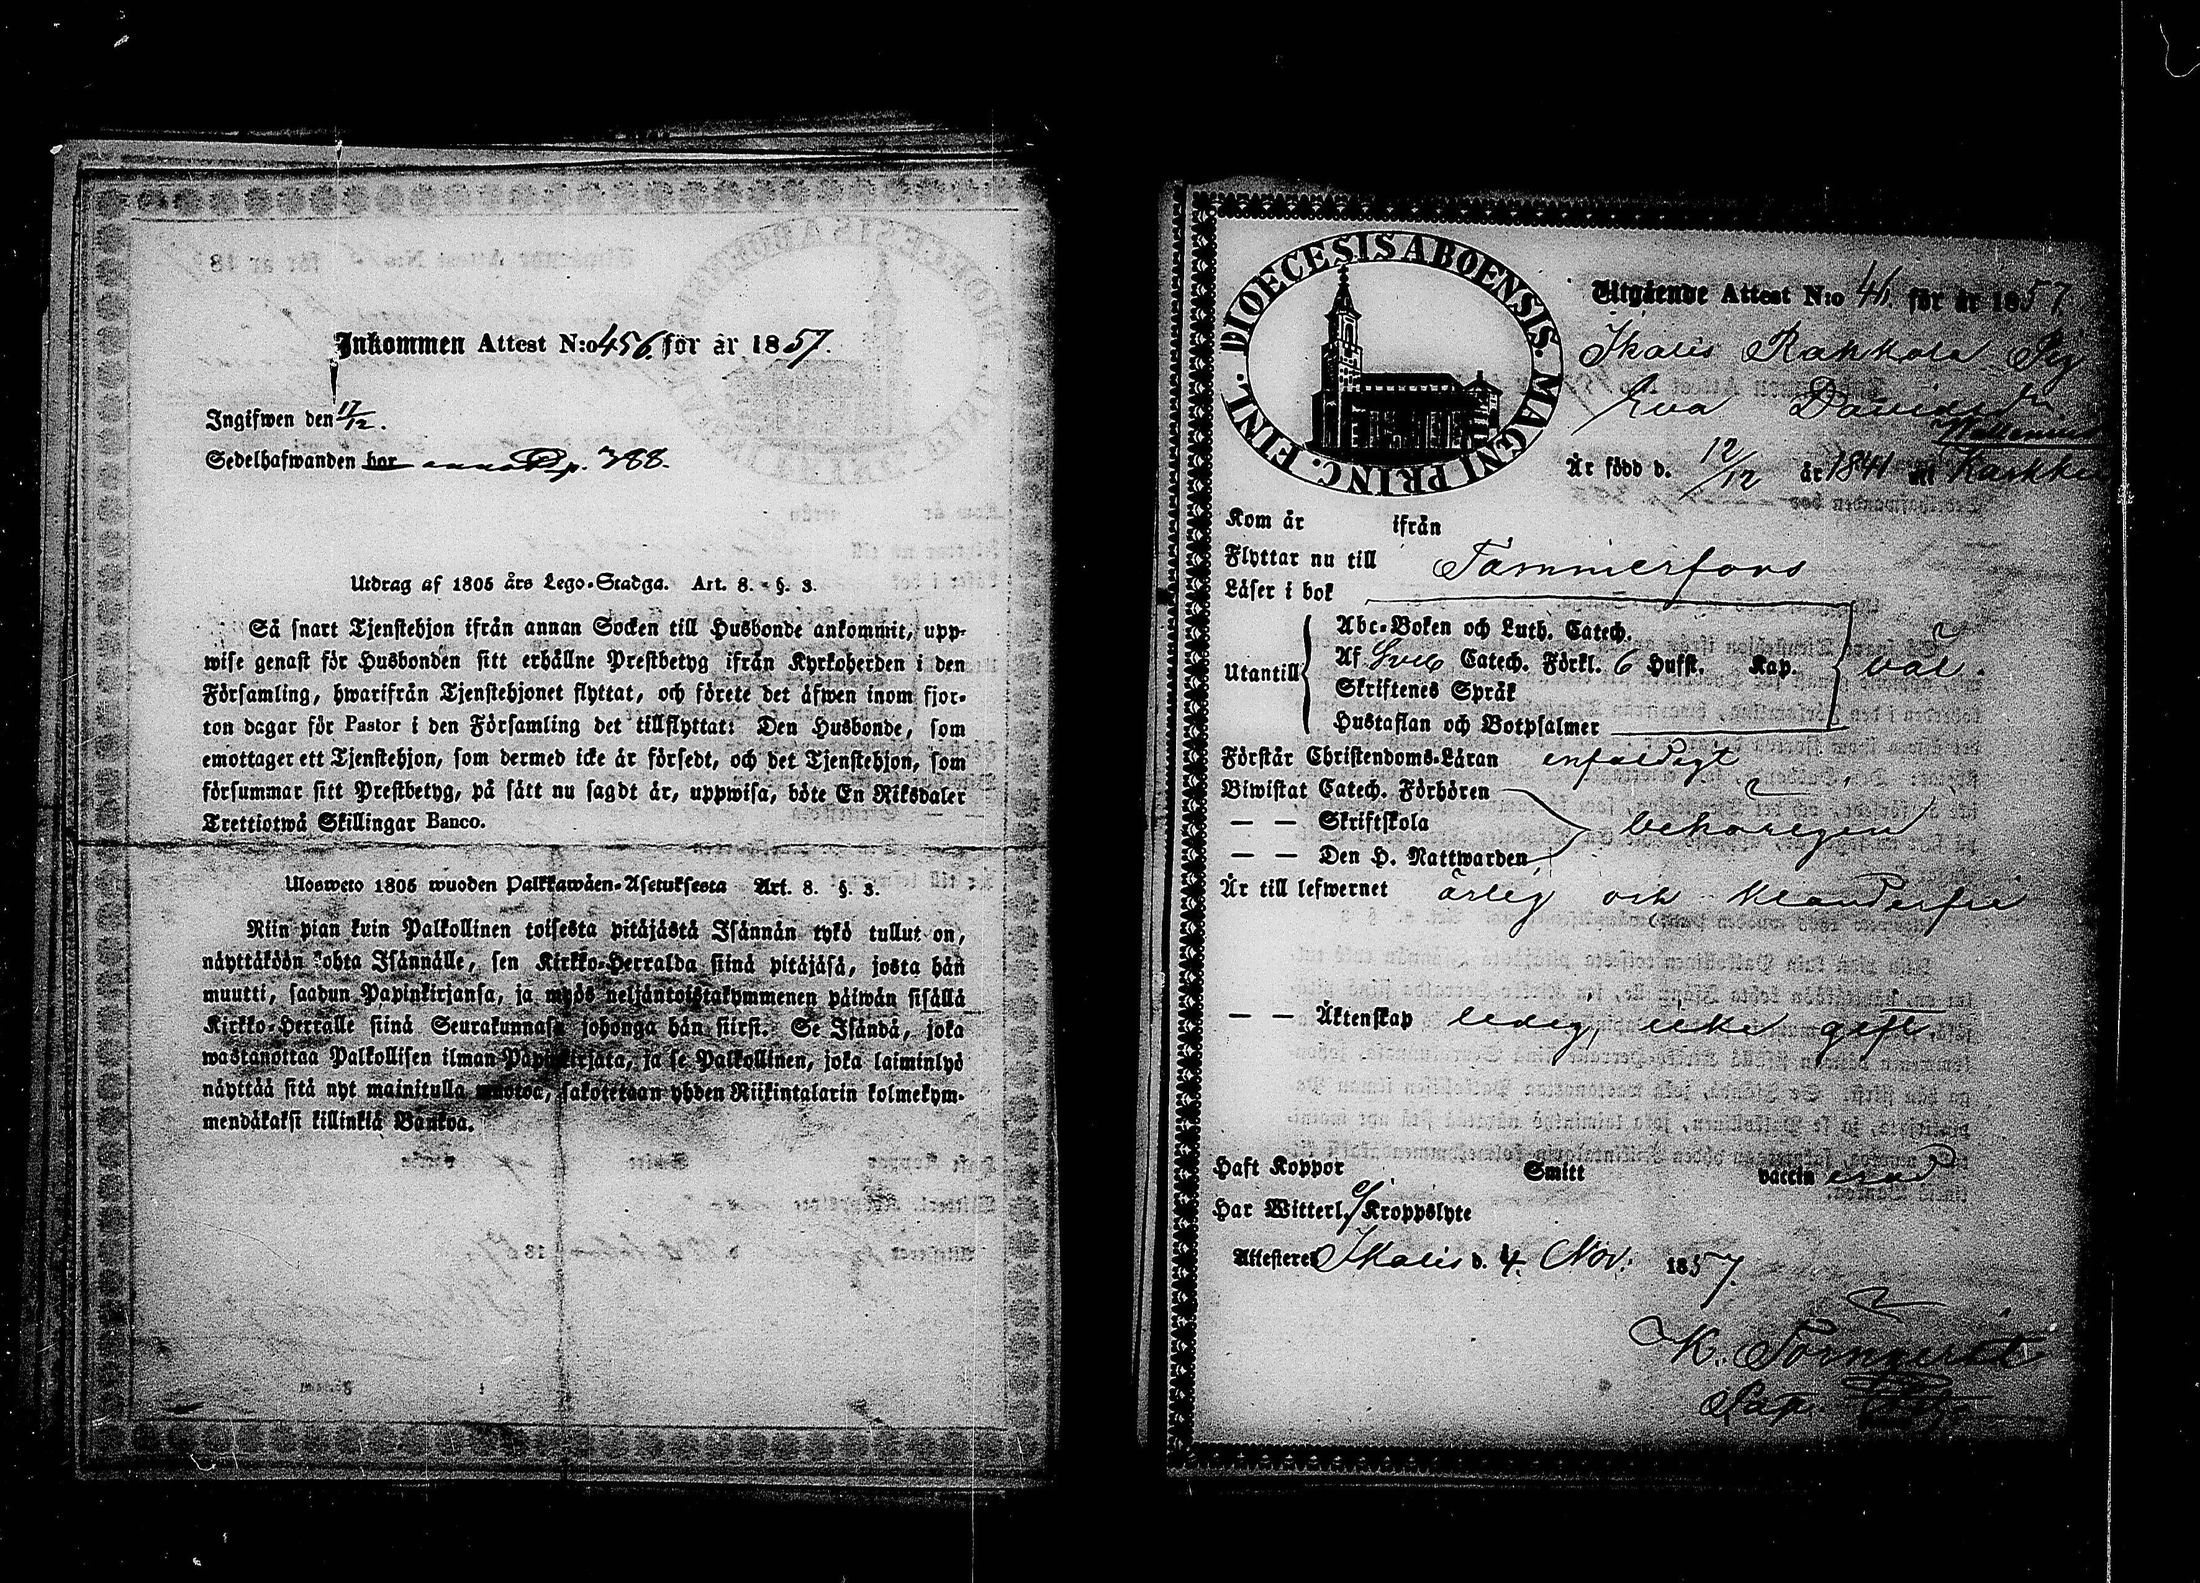 Inkommen Attest N:o 456. för år 1857.
Ingifwen den 17/12.
Sedelhafwanden bor p. 788.
Utdrag af 1805 års Lego-Stadga. Art. 8. §. 3.
Så snart Tjenstehjon ifrån annan Socken till Husbonde ankommit, upp-
wise genast för Husbonden sitt erhållne Prestbetyg ifrån Kyrkoherden i den
Församling, hwarifrån Tjenstehjonet flyttat, och förete det äfwen inom fjor-
ton dagar för Pastor i den Församling det tillflyttat: Den Husbonde, som
emottager ett Tjenstehjon, som dermed icke är försedt, och det Tjenstehjon, som
försummar sitt Prestbetyg, på sätt nu sagdt är, uppwisa, böte En Riksdaler
Trettiotwå Skillingar Banco.
Ulosweto 1805 wuoden Palkkawäen-Asetuksesta Art. 8. §. 3.
Niin pian kuin Palkollinen toisesta pitäjästä Isännän tykö tullut on,
näyttäköön kohta Isännälle, sen Kirkko-Herralda siinä pitäjäsä, josta hän
muutti, saadun Papinkirjansa, ja myös neljäntoistakymmenen päiwän sisällä
Kirkko-Herralle siinä Seurakunnasa johonga hän siirsi. Se Isändä, joka
wastanottaa Palkollisen ilman Papinkirjata, ja se Palkollinen, joka laiminlyö
näyttää sitä nyt mainitulla muotoa, sakotetaan yhden Riikintalarin kolmekym-
mendäkaksi killinkiä Bankoa.
DIOECESIS ABOENSIS. MAGNI PRINC. FINL.
Utgående Attest N:o 41. för år 1857.
Ikalis Rahkola Pig
Eva Davidsdr
Är född d. 12/12 år 1841 uti Karkku
Kom år ifrån
Flyttar nu till Tammerfors
Läser i bok
Abc-Boken och Luth. Catech.
Utantill Af Sveb Catech. Förkl. 6 Hufst. Kap. väl.
Skriftenes Språk
Hustaflan och Botpsalmer
Förstår Christendoms-Läran enfaldigt
Biwistat Catech. Förhören
— — Skriftskola behörigen
— — Den H. Nattwarden
Är till lefwernet ärlig och klanderfri
— — Äktenskap ledig, icke gift,
Haft Koppor Smitt vaccin erad
Har Witterl. Kroppslyte
Attesteras Ikalis d. 4. Nov. 1857.
K. Törnqvist